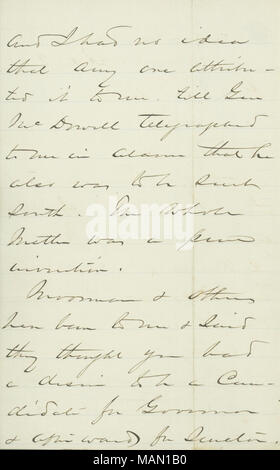 and I had no idea
that any one attribu-
ted it to me. till Gen
McDowell Telegraphed
to me in alarm that he
also was to be sent
South. The whole
Matter was a pure
invention.
Moorman & others
have been to me & said
they thought you had
a desire to be a Can-
didate for Governor
& afterwards for Senator.
alamy
alamy
Image ID: MAN1B0
www.alamy.com